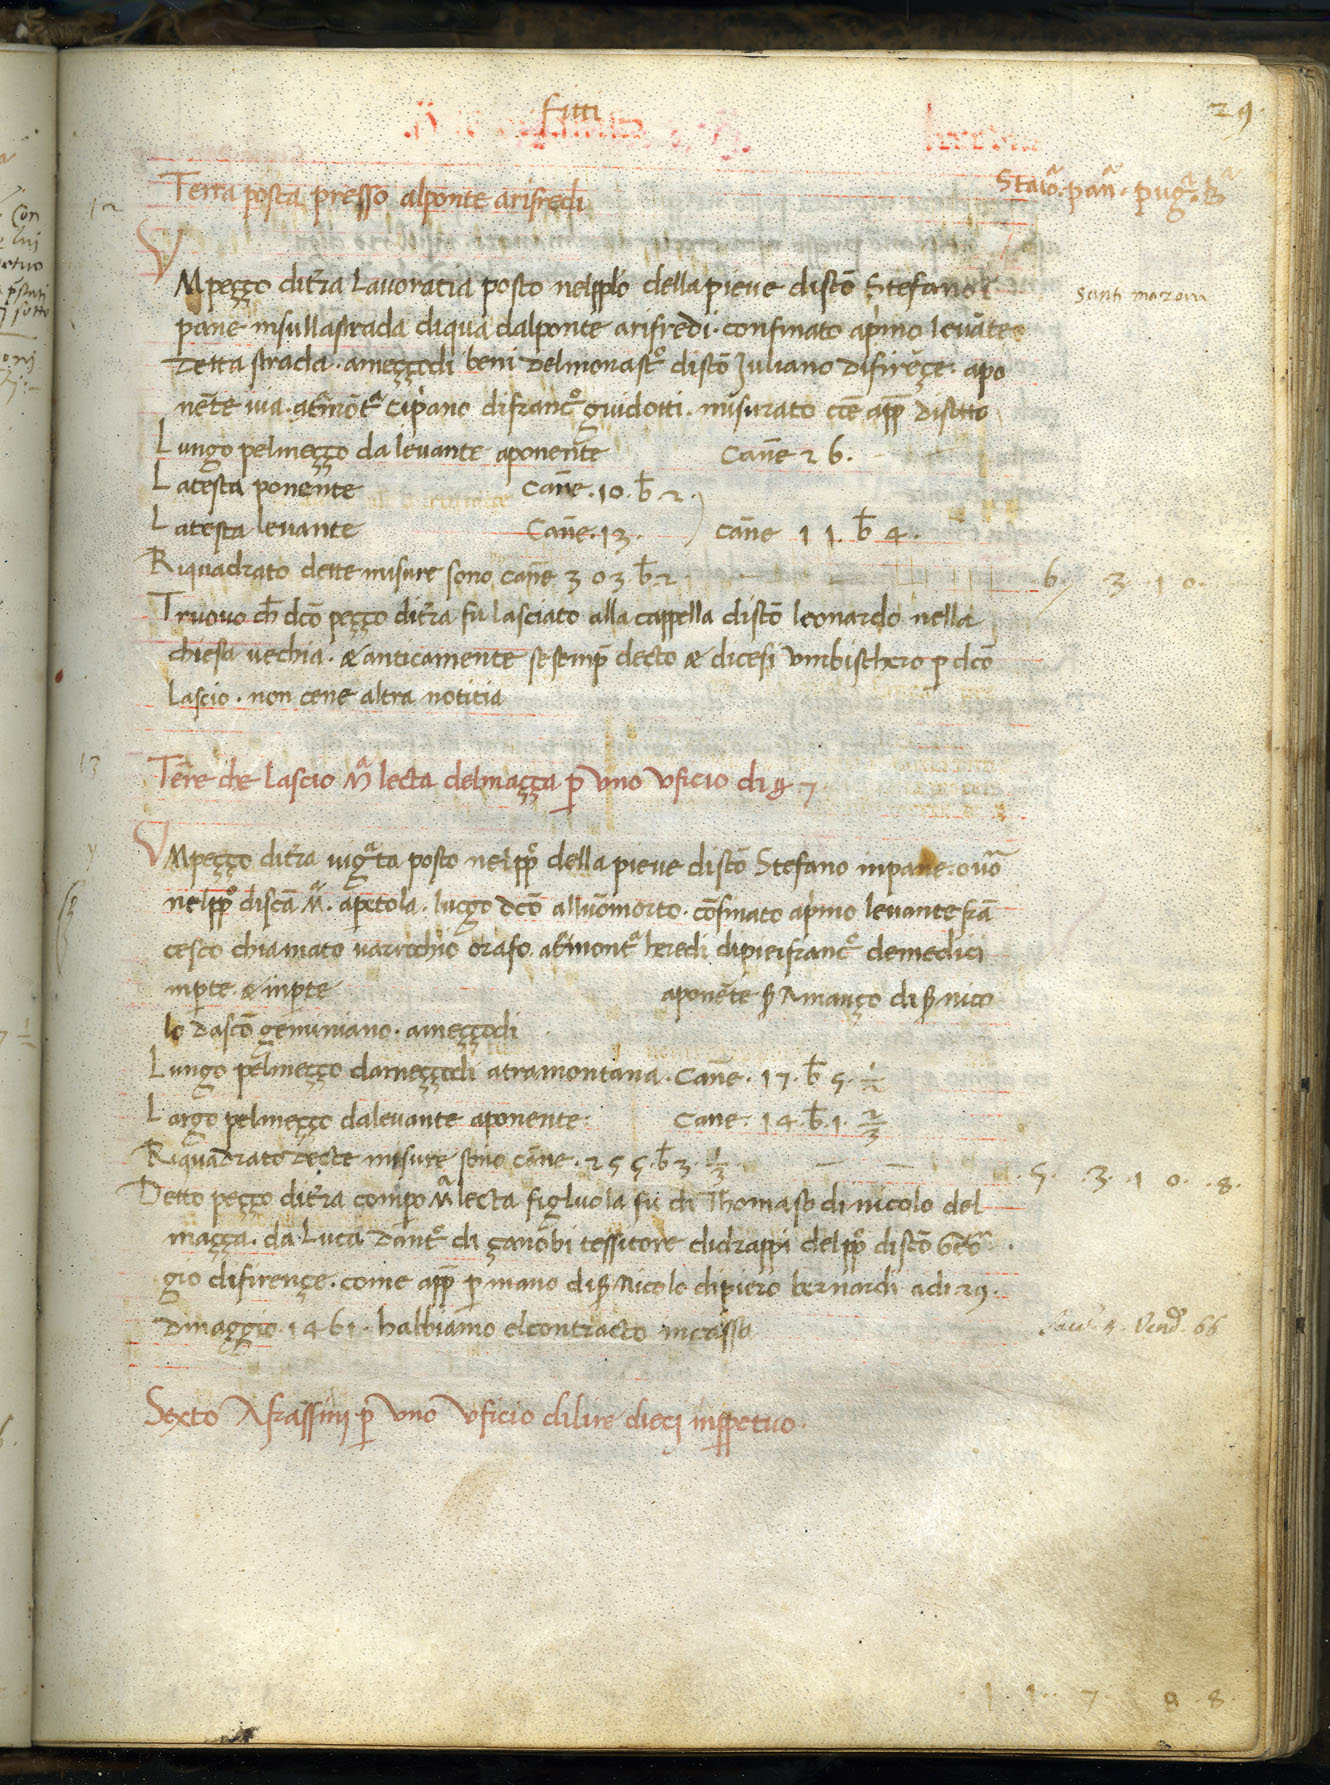 fitti
29.
Staiõ. pañ. pugã. bã
12
Terra posta presso alponte arifredi
VMpezzo diťra Lavoratia posto nelpplo della pieve discõ Stefano ĩ
Santi mazoni
pane insullastrada diqua dalponte arifredi. confinato apͥmo levãte
detta strada. amezzodi beni delmonastº discõ Juliano difirẽçe. apo
nẽte via. atřmõtª Cipͥano difrancº guidotti. misurato cõe app̃ disotto
Lungo pelmezzo da levante aponente Cañe 26.
Latesta ponente Cañe. 10. b̃. 2.
Latesta levante Cañe. 13. Cañe 11. b̃ 4.
Riquadrato dette misure sono Cañe 303 b̃ 2
6. 3. 10.
Truovo ch̃ dcõ pezzo diťra fu lasciato alla cappella discõ leonardo nella
chiesa vechia. & anticamente sesemp̃ decto & dicesi vmbischero p dcõ
Lascio. non cene altra notitia
13
Teřre che Lascio Mª lecta delmazza p̃ vno vficio di 7
VMpezzo diťra vigªta posto nelppº della pieve discõ Stefano inpane. ovõ
nelppº discã Mª. apetola. luogo dcõ alluõmorto. cõfinato apͥmo levante frã
cesco chiamato varrochio orafo. atřmontª heredi dipierfrancº demedici
inpͥte & inpͥte aponẽte S Amanço di S nico
lo dascõ gemuniano. amezzodi
Lungo pelmezzo damezzodi atramontana. Cañe. 17. b̃ 5. 1/2
Largo pelmezzo dalevante aponente. Cane. 14. b̃. 1. 2/3
Riquadrato decte misure sono cãne. 255. b̃ 3. 1/3
5. 3. 10. 8.
Detto pezzo diťra compo Mª lecta figluola fu di Thomaso di nicolo del
mazza. da Luca dantº di çanobi tessitore didrappi delppº discõ
gio difirençe. come app̃ p mano di S Nicolo dipiero bernardi adi. 29.
dmaggio. 1461. habbiamo elcontracto incasso
Vend. 66
Sexto Afrassini p̃ vno vficio dilire dieci inppetuo.
11. 7. 8. 8.